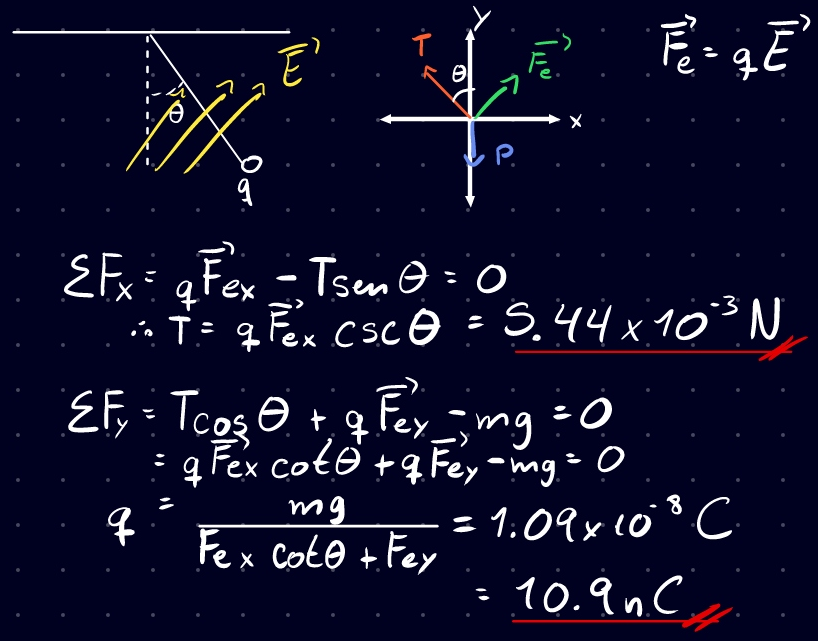 E⃗
θ
q
y
T
θ
F⃗e
x
P
F⃗e = qE⃗
ΣFx = qF⃗ex - Tsen θ = 0
∴ T = qF⃗ex csc θ = 5.44 x 10⁻³ N
ΣFy = Tcos θ + qF⃗ey - mg = 0
= qF⃗ex cotθ + qF⃗ey - mg = 0
q = mg / (Fex cotθ + Fey) = 1.09 x 10⁻⁸ C
= 10.9 nC